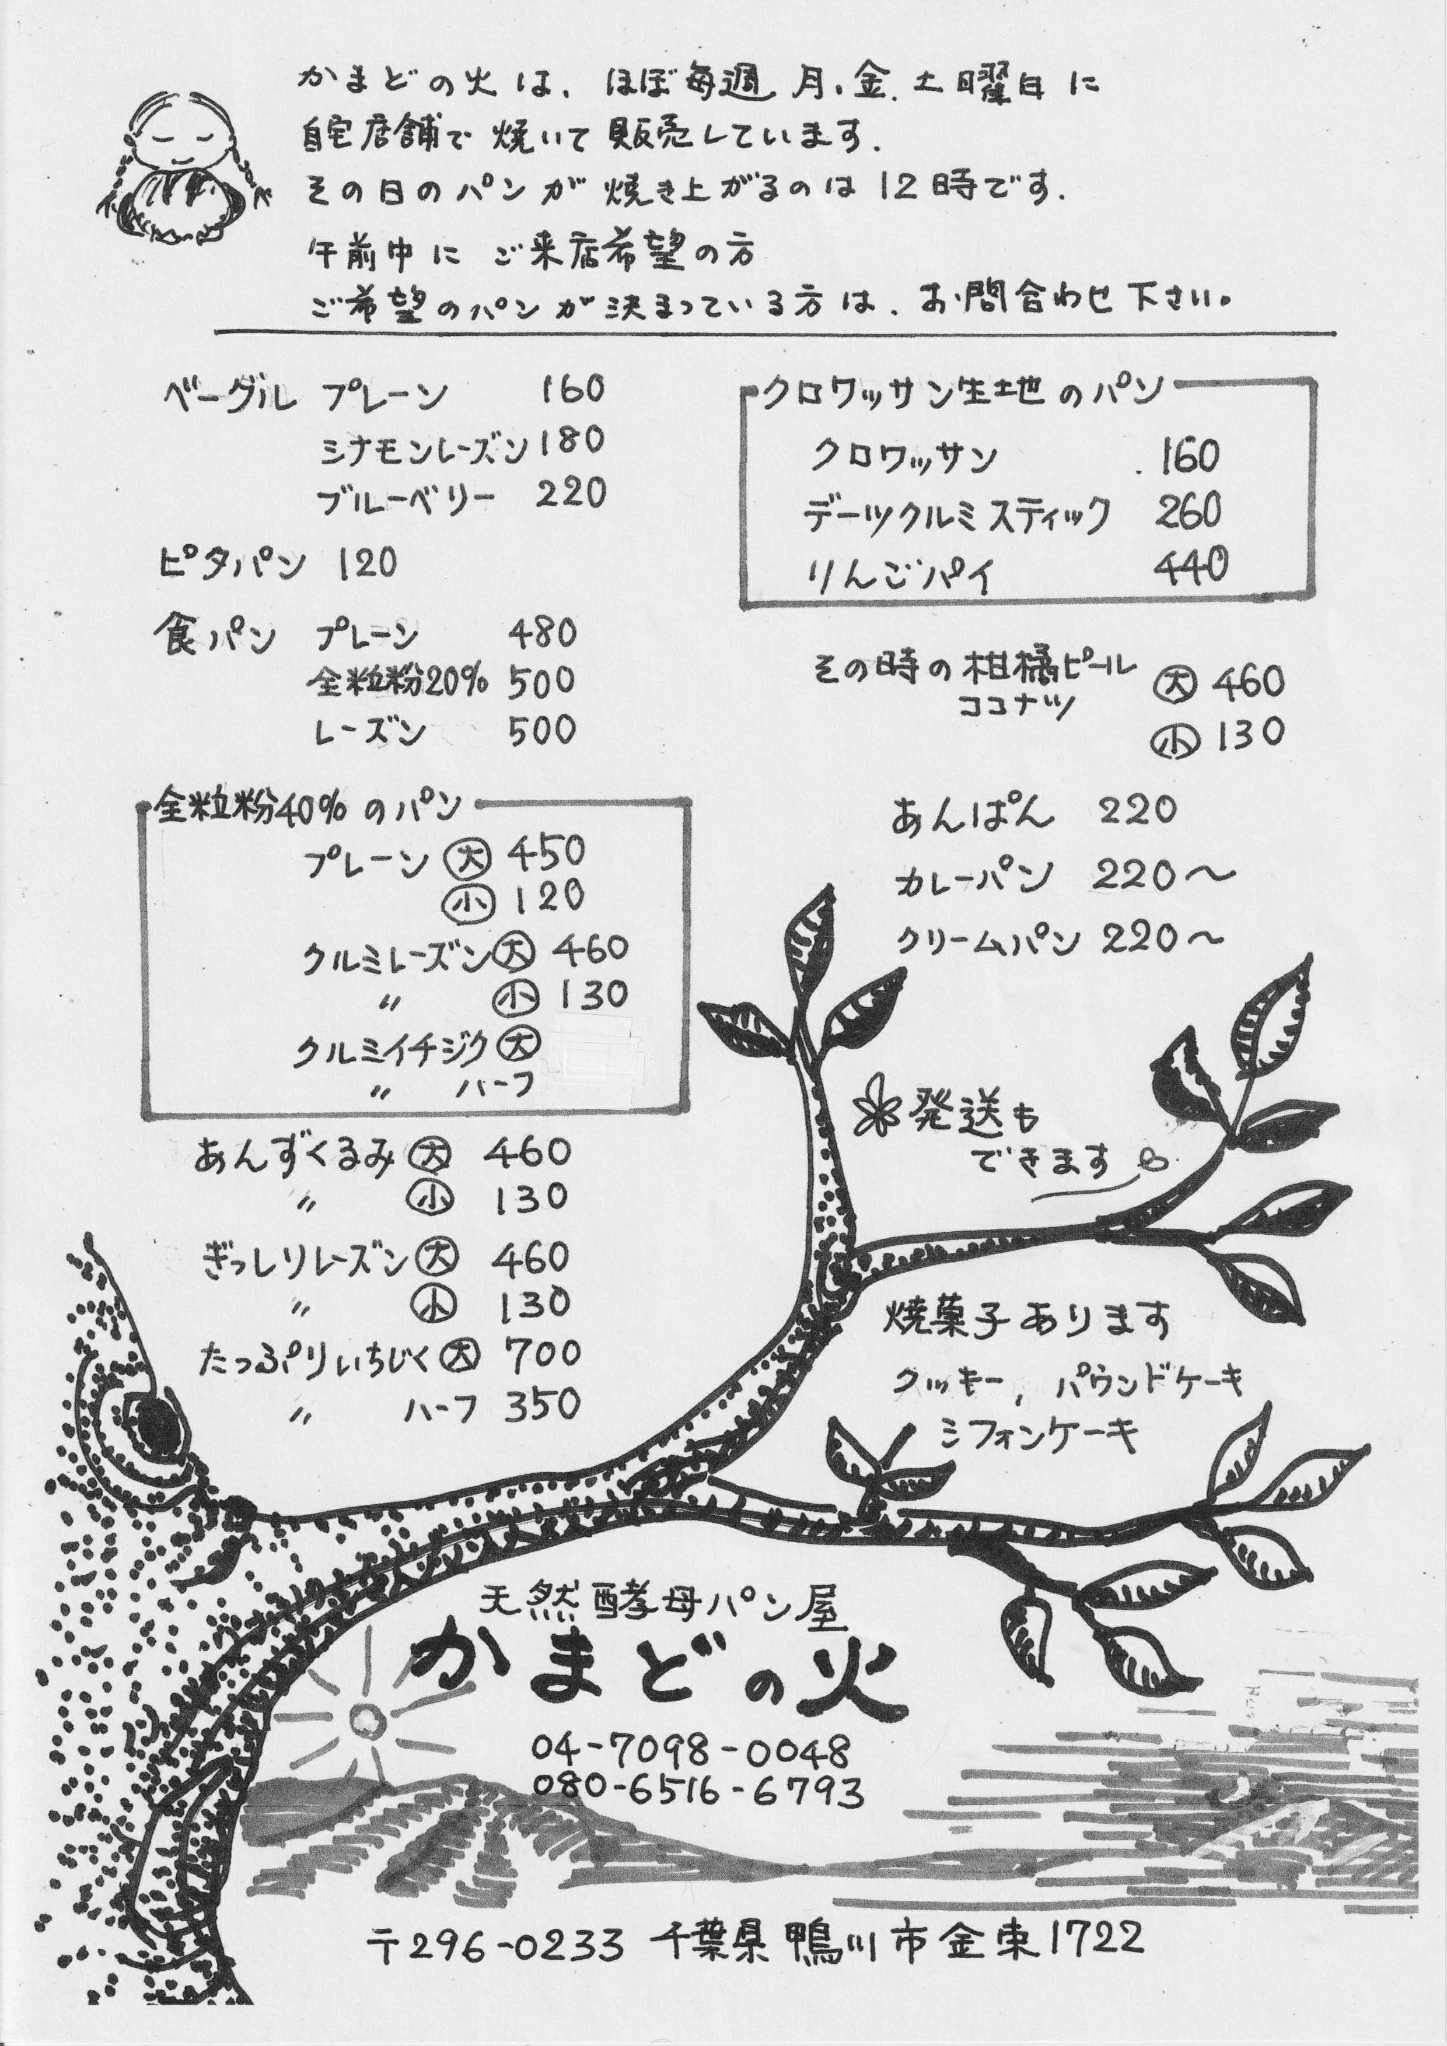 かまどの火は、ほぼ毎週 月、金、土曜日に
自宅店舗で焼いて販売しています.
その日のパンが焼き上がるのは12時です.
午前中に ご来店希望の方
ご希望のパンが決まっている方は、お問合わせ下さい。
ベーグル プレーン 160
シナモンレーズン 180
ブルーベリー 220
ピタパン 120
食パン プレーン 480
全粒粉20% 500
レーズン 500
全粒粉40%のパン
プレーン 大 450
小 120
クルミレーズン 大 460
〃 小 130
クルミイチジク 大
〃 ハーフ
あんずくるみ 大 460
〃 小 130
ぎっしりレーズン 大 460
〃 小 130
たっぷりいちじく 大 700
〃 ハーフ 350
クロワッサン生地のパン
クロワッサン 160
デーツクルミスティック 260
りんごパイ 440
その時の柑橘ピール 大 460
ココナツ
小 130
あんぱん 220
カレーパン 220〜
クリームパン 220〜
発送も
できます
焼菓子あります
クッキー, パウンドケーキ
シフォンケーキ
天然酵母パン屋
かまどの火
04-7098-0048
080-6516-6793
〒296-0233 千葉県鴨川市金束1722